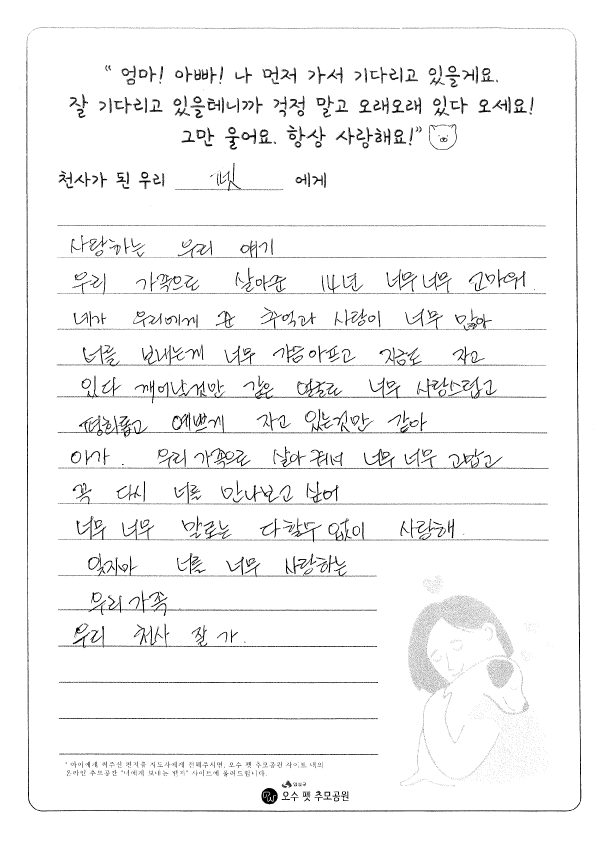 “ 엄마! 아빠! 나 먼저 가서 기다리고 있을게요.
잘 기다리고 있을테니까 걱정 말고 오래오래 있다 오세요!
그만 울어요. 항상 사랑해요!”
천사가 된 우리 에게
사랑하는 우리 애기
우리 가족으로 살아준 14년 너무너무 고마워.
네가 우리에게 준 추억과 사랑이 너무 많아
너를 보내는게 너무 가슴아프고 지금도 자고
있다 깨어날것만 같은 얼굴로 너무 사랑스럽고
평화롭고 예쁘게 자고 있는것만 같아
아가. 우리가족으로 살아줘서 너무 너무 고맙고
꼭 다시 너를 만나보고 싶어
너무 너무 말로는 다할수 없이 사랑해.
잊지마 너를 너무 사랑하는
우리가족
우리 천사 잘 가.
* 아이에게 써주신 편지를 지도사에게 전해주시면, 오수 펫 추모공원 사이트 내의
온라인 추모공간 "너에게 보내는 편지" 사이트에 올려드립니다.
임실군
오수 펫 추모공원